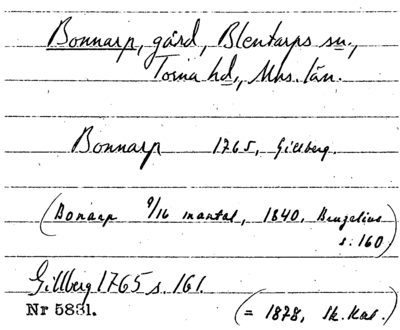 Bonnarp, gård, Blentarps sn.,
Torna hd., Mhs. län.
Bonnarp 1765, Gillberg.
(Bonarp 9/16 mantal, 1840, Bruzelius
s. 160)
Gillberg 1765 s. 161.
Nr 5831. (= 1878, Sk. Kal.)